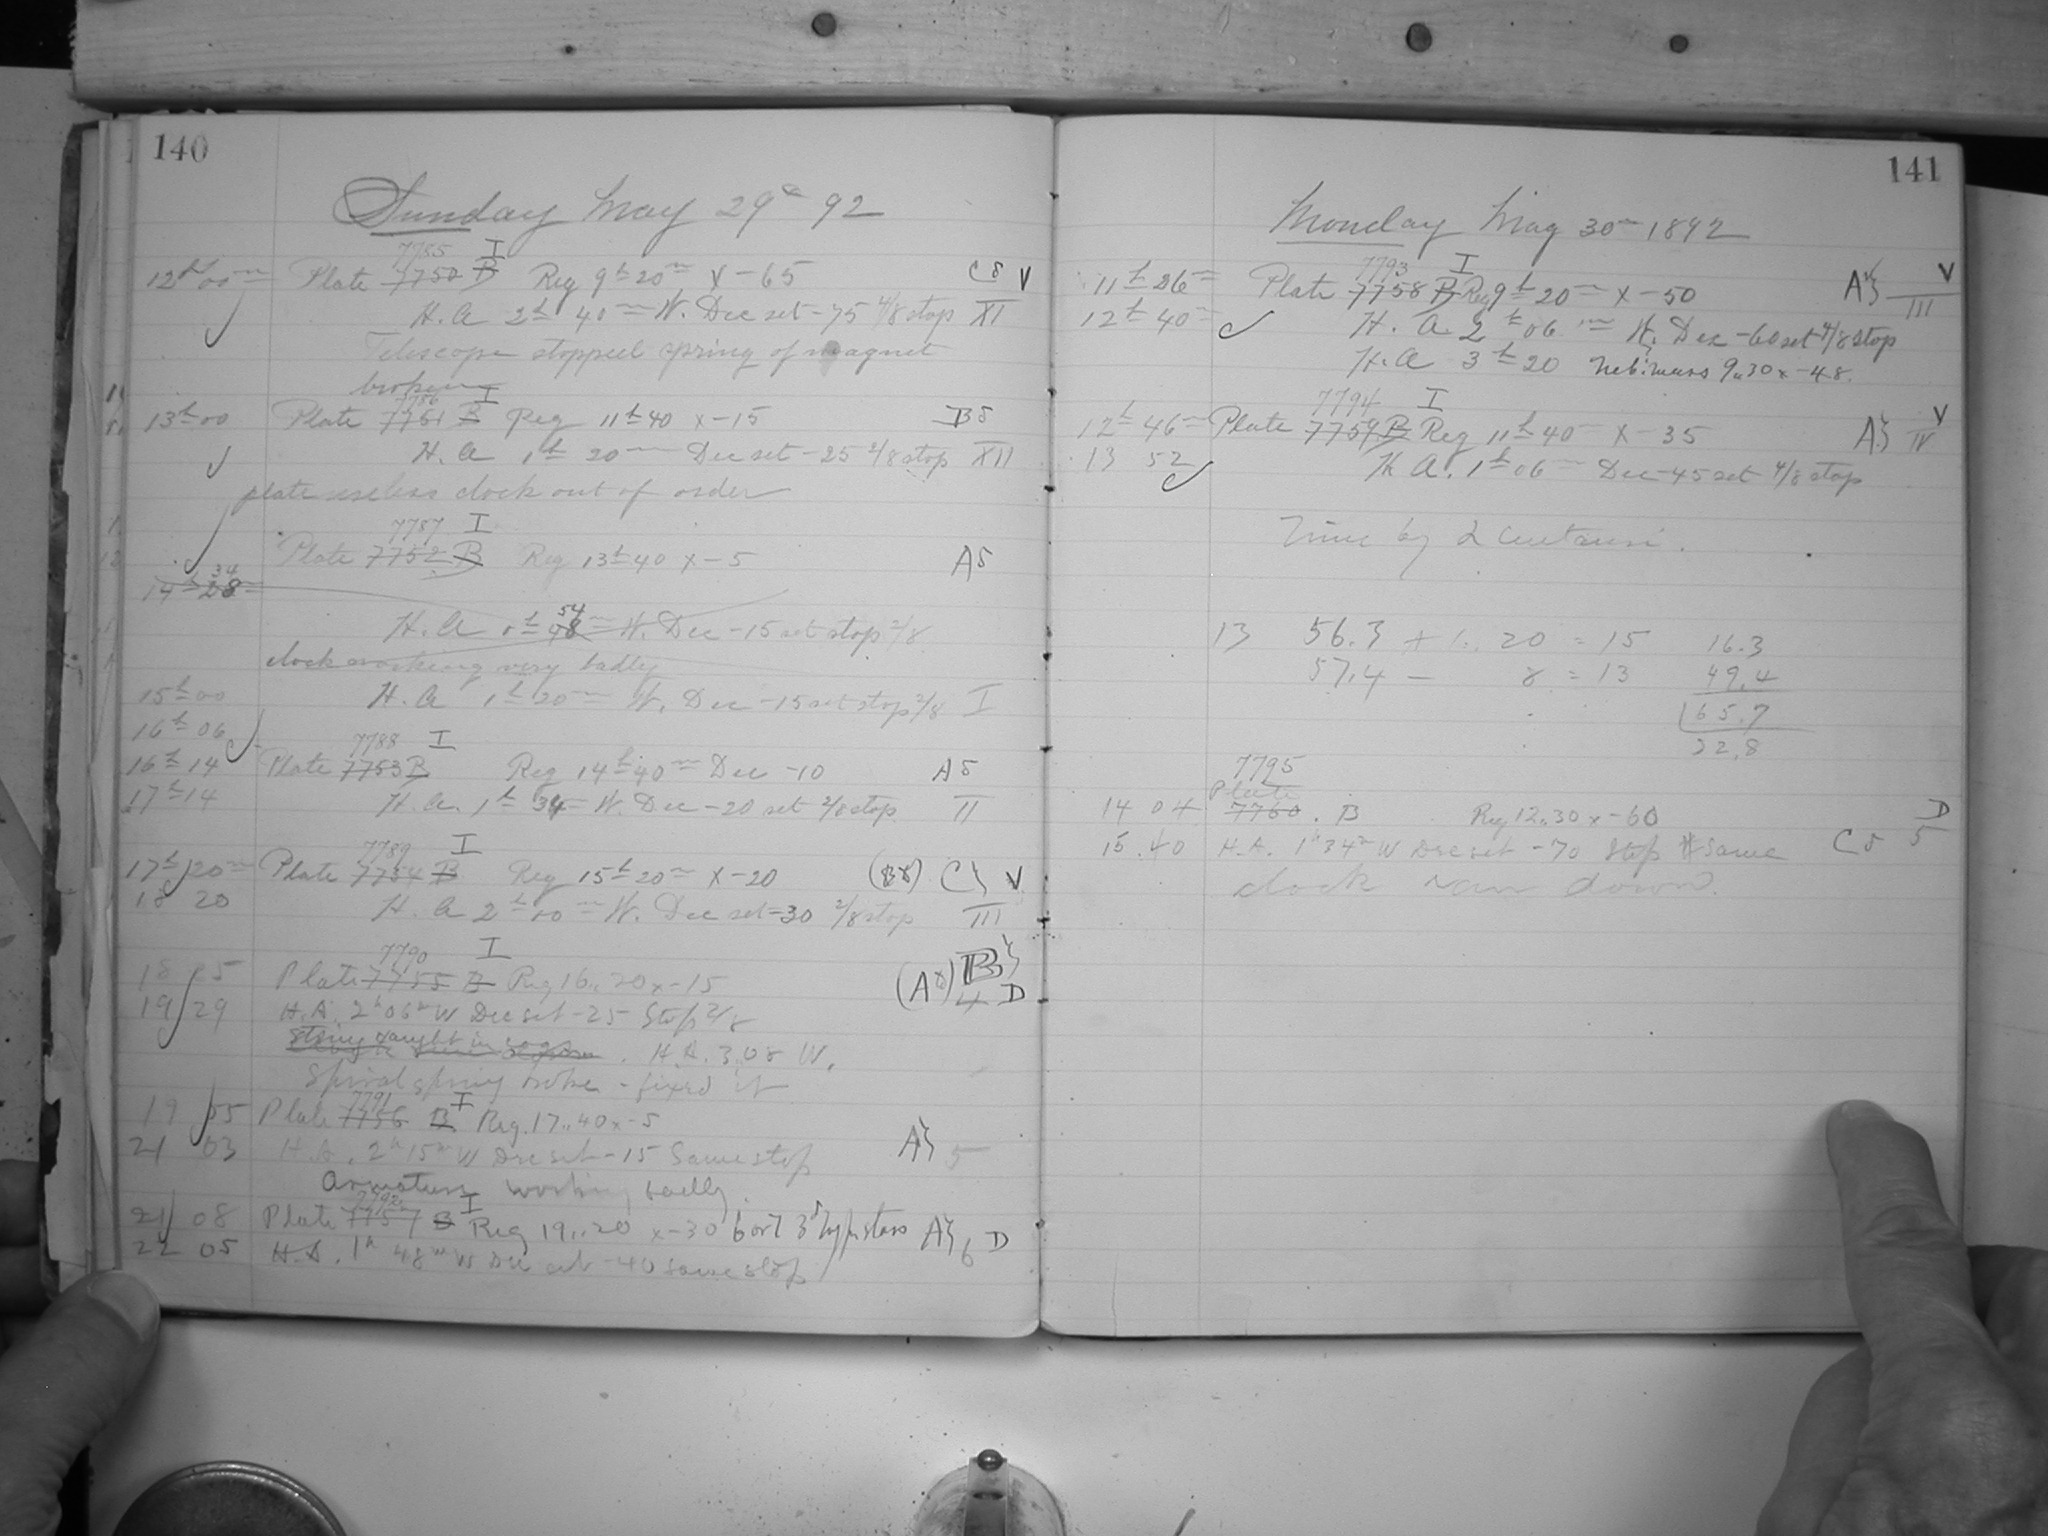 140
Sunday May 29th 92
7785 I
12h 00m Plate 7750 B Reg 9h 20m x -65 C 5 V
H. A 2h 40m W. Dec set -75 4/8 stop XI
Telescope stopped spring of magnet
broken
7786 I
13h 00 Plate 7751 B Reg 11h 40 x -15 B5
H. A 1h 20m Dec set -25 2/8 stop XII
plate useless clock out of order
7787 I
Plate 7752 B Reg 13h 40 x -5 A5
34
14h 28m
54
H. A 0h 48m W. Dec -15 set stop 2/8
clock working very badly
15h 00 H. A 1h 20m W. Dec -15 set stop 2/8 I
16h 06
7788 I
16h 14 Plate 7753 B Reg 14h 40m Dec -10 A5
17h 14 H. A. 1h 34m W. Dec -20 set 2/8 stop II
7789 I
17h 20m Plate 7754 B Reg 15h 20m x -20 C V
18 20 H. A 2h 00m W. Dec set -30 2/8 stop III
7790 I
18 25 Plate 7755 B Reg 16.. 20 x -15 B
19 29 H.A. 2h 06m W Dec set -25 Stop 2/8 4 D
String caught in cogs. H.A. 3.08 W.
Spiral spring broke - fixed it
7791 I
19 55 Plate 7756 B Reg. 17.. 40 x -5
21 03 H.A. 2h 15m W Dec set -15 Same stop A 5
Armature working badly.
7792 I
21 08 Plate 7757 B Reg 19.. 20 x -30 6 or 7 3d type stars A
22 05 H.A. 1h 48m W Dec set -40 same stop 6 D
141
Monday May 30th 1892
7793 I
11h 26m Plate 7758 B Reg 9h 20m x -50 A V
12h 40m H. A. 2h 06m W. Dec -60 set 4/8 stop III
H. A 3h 20
7794 I
12h 46m Plate 7759 B Reg 11h 40m x -35 A V
13 52 H. A. 1h 06m Dec -45 set 4/8 stop IV
Time by α Centauri.
13 56.3 + 1.. 20 = 15 16.3
57.4 - 8 = 13 49.4
65.7
22.8
7795
Plate
14 04 7760. B Reg 12.. 30 x -60 D
15.40 H.A. 1h 34m W Dec set -70 Stop Same C 5 5
clock ran down.